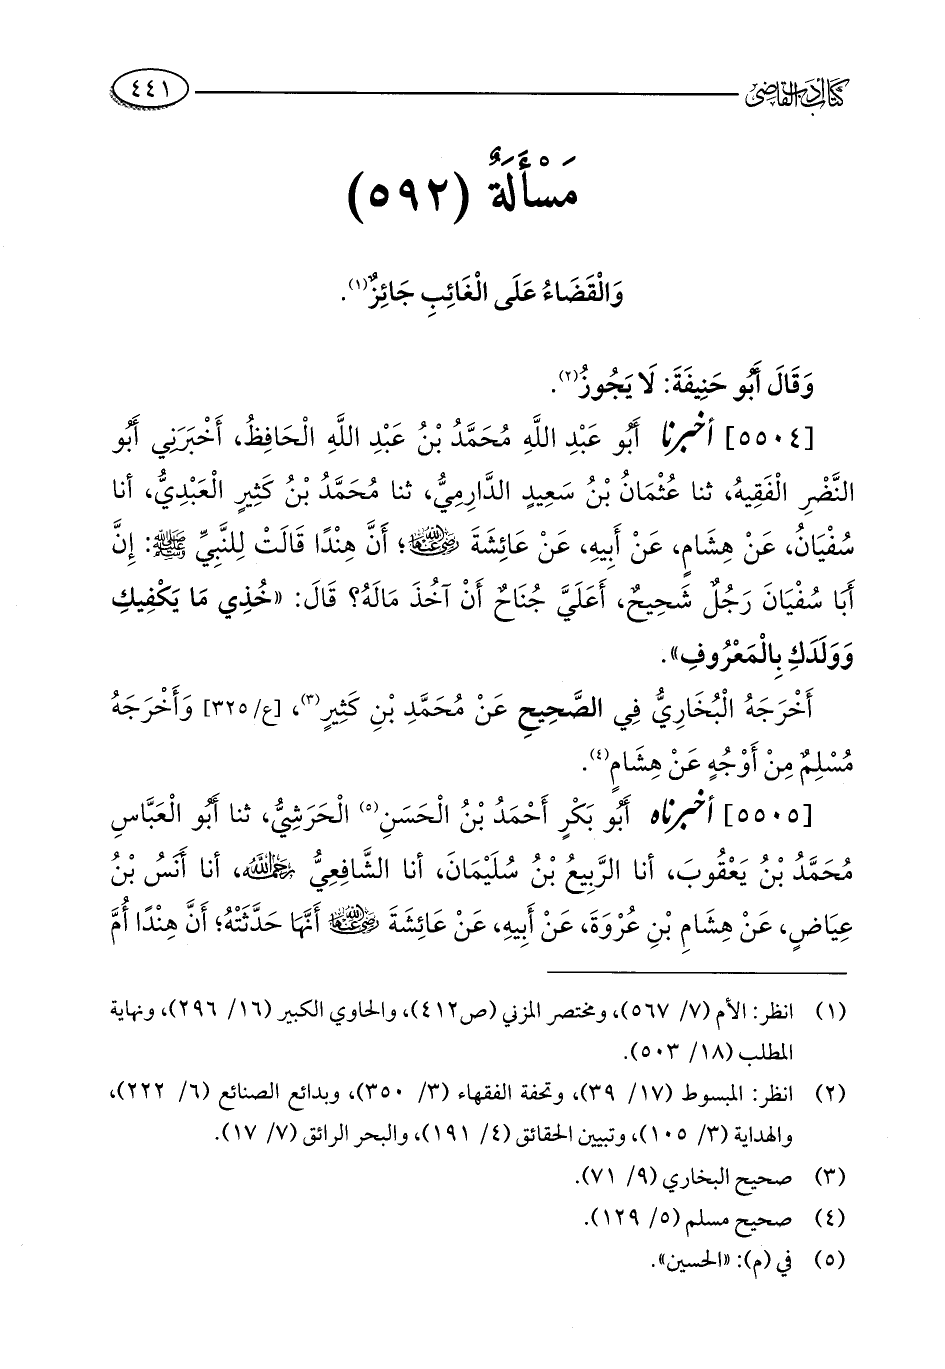 كتاب أدب القاضي ٤٤١
مَسْأَلَةٌ (٥٩٢)
وَالْقَضَاءُ عَلَى الْغَائِبِ جَائِزٌ(١).
وَقَالَ أَبُو حَنِيفَةَ: لَا يَجُوزُ(٢).
[٥٥٠٤] أخبرنا أَبُو عَبْدِ اللَّهِ مُحَمَّدُ بْنُ عَبْدِ اللَّهِ الْحَافِظُ، أَخْبَرَنِي أَبُو
النَّضْرِ الْفَقِيهُ، ثنا عُثْمَانُ بْنُ سَعِيدٍ الدَّارِمِيُّ، ثنا مُحَمَّدُ بْنُ كَثِيرٍ الْعَبْدِيُّ، أنا
سُفْيَانُ، عَنْ هِشَامٍ، عَنْ أَبِيهِ، عَنْ عَائِشَةَ رضي الله عنها؛ أَنَّ هِنْدًا قَالَتْ لِلنَّبِيِّ ﷺ: إِنَّ
أَبَا سُفْيَانَ رَجُلٌ شَحِيحٌ، أَعَلَيَّ جُنَاحٌ أَنْ آخُذَ مَالَهُ؟ قَالَ: «خُذِي مَا يَكْفِيكِ
وَوَلَدَكِ بِالْمَعْرُوفِ».
أَخْرَجَهُ الْبُخَارِيُّ فِي الصَّحِيحِ عَنْ مُحَمَّدِ بْنِ كَثِيرٍ(٣)، [ع/٣٢٥] وَأَخْرَجَهُ
مُسْلِمٌ مِنْ أَوْجُهٍ عَنْ هِشَامٍ(٤).
[٥٥٠٥] أخبرناه أَبُو بَكْرٍ أَحْمَدُ بْنُ الْحَسَنِ(٥) الْحَرَشِيُّ، ثنا أَبُو الْعَبَّاسِ
مُحَمَّدُ بْنُ يَعْقُوبَ، أنا الرَّبِيعُ بْنُ سُلَيْمَانَ، أنا الشَّافِعِيُّ رحمه الله، أنا أَنَسُ بْنُ
عِيَاضٍ، عَنْ هِشَامِ بْنِ عُرْوَةَ، عَنْ أَبِيهِ، عَنْ عَائِشَةَ رضي الله عنها أَنَّهَا حَدَّثَتْهُ؛ أَنَّ هِنْدًا أُمَّ
(١) انظر: الأم (٧/ ٥٦٧)، ومختصر المزني (ص٤١٢)، والحاوي الكبير (١٦/ ٢٩٦)، ونهاية
المطلب (١٨/ ٥٠٣).
(٢) انظر: المبسوط (١٧/ ٣٩)، وتحفة الفقهاء (٣/ ٣٥٠)، وبدائع الصنائع (٦/ ٢٢٢)،
والهداية (٣/ ١٠٥)، وتبيين الحقائق (٤/ ١٩١)، والبحر الرائق (٧/ ١٧).
(٣) صحيح البخاري (٩/ ٧١).
(٤) صحيح مسلم (٥/ ١٢٩).
(٥) في (م): «الحسين».